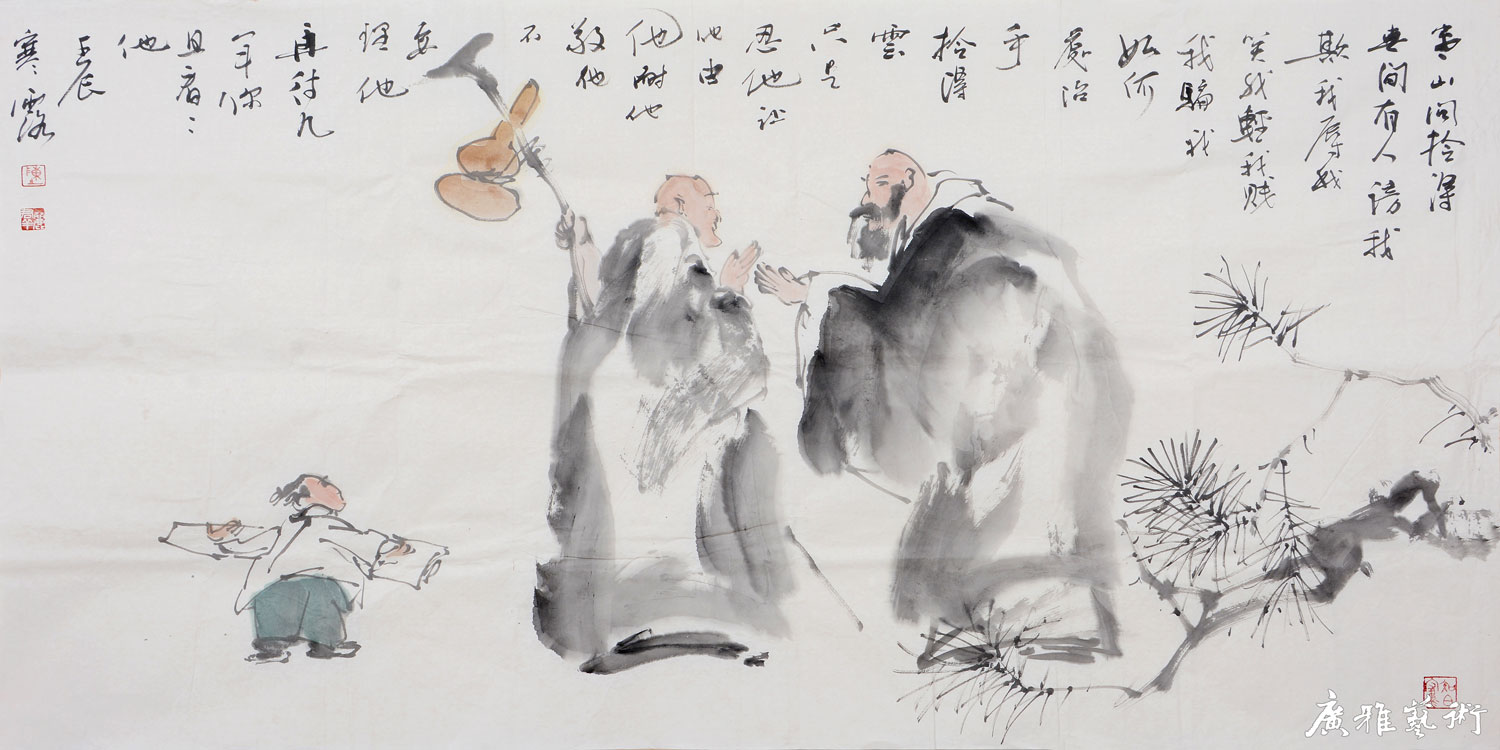 寒山问拾得
世间有人谤我
欺我辱我
笑我轻我贱
我骗我
如何
处治
乎
拾得
雲
只是
忍他让
他由
他耐他
敬他
不
要
理他
再待几
年你
且看
他
壬辰
寒露
陳
廣雅藝術